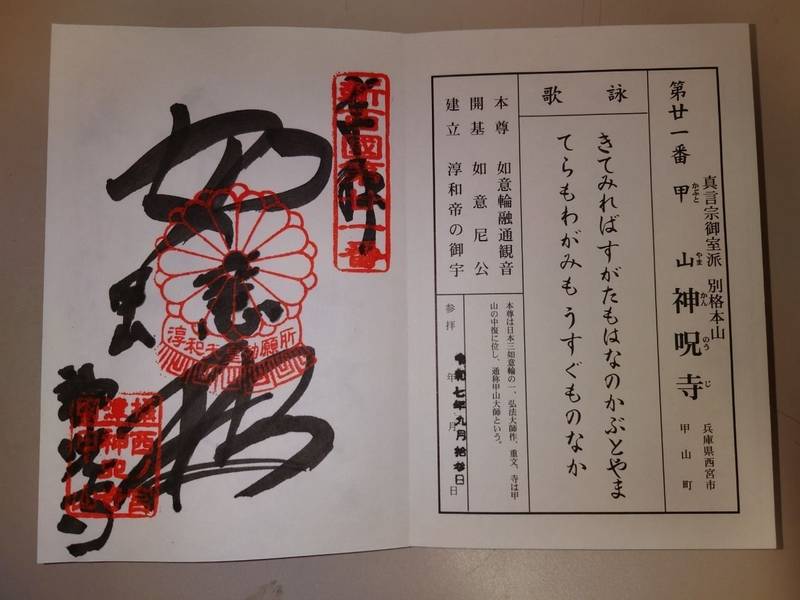 真言宗御室派 別格本山
第廿一番 甲山神呪寺
かぶと やま かん のう じ
兵庫県西宮市
甲山町
詠歌
きてみればすがたもはなのかぶとやま
てらもわがみもうすぐものなか
本尊 如意輪融通観音
開基 如意尼公
建立 淳和帝の御宇
本尊は日本三如意輪の一、弘法大師作、重文、寺は甲
山の中復に位し、通称甲山大師という。
参拝 年 月 日
令和七年九月拾参日
新西國第廿一番
如意輪
甲山